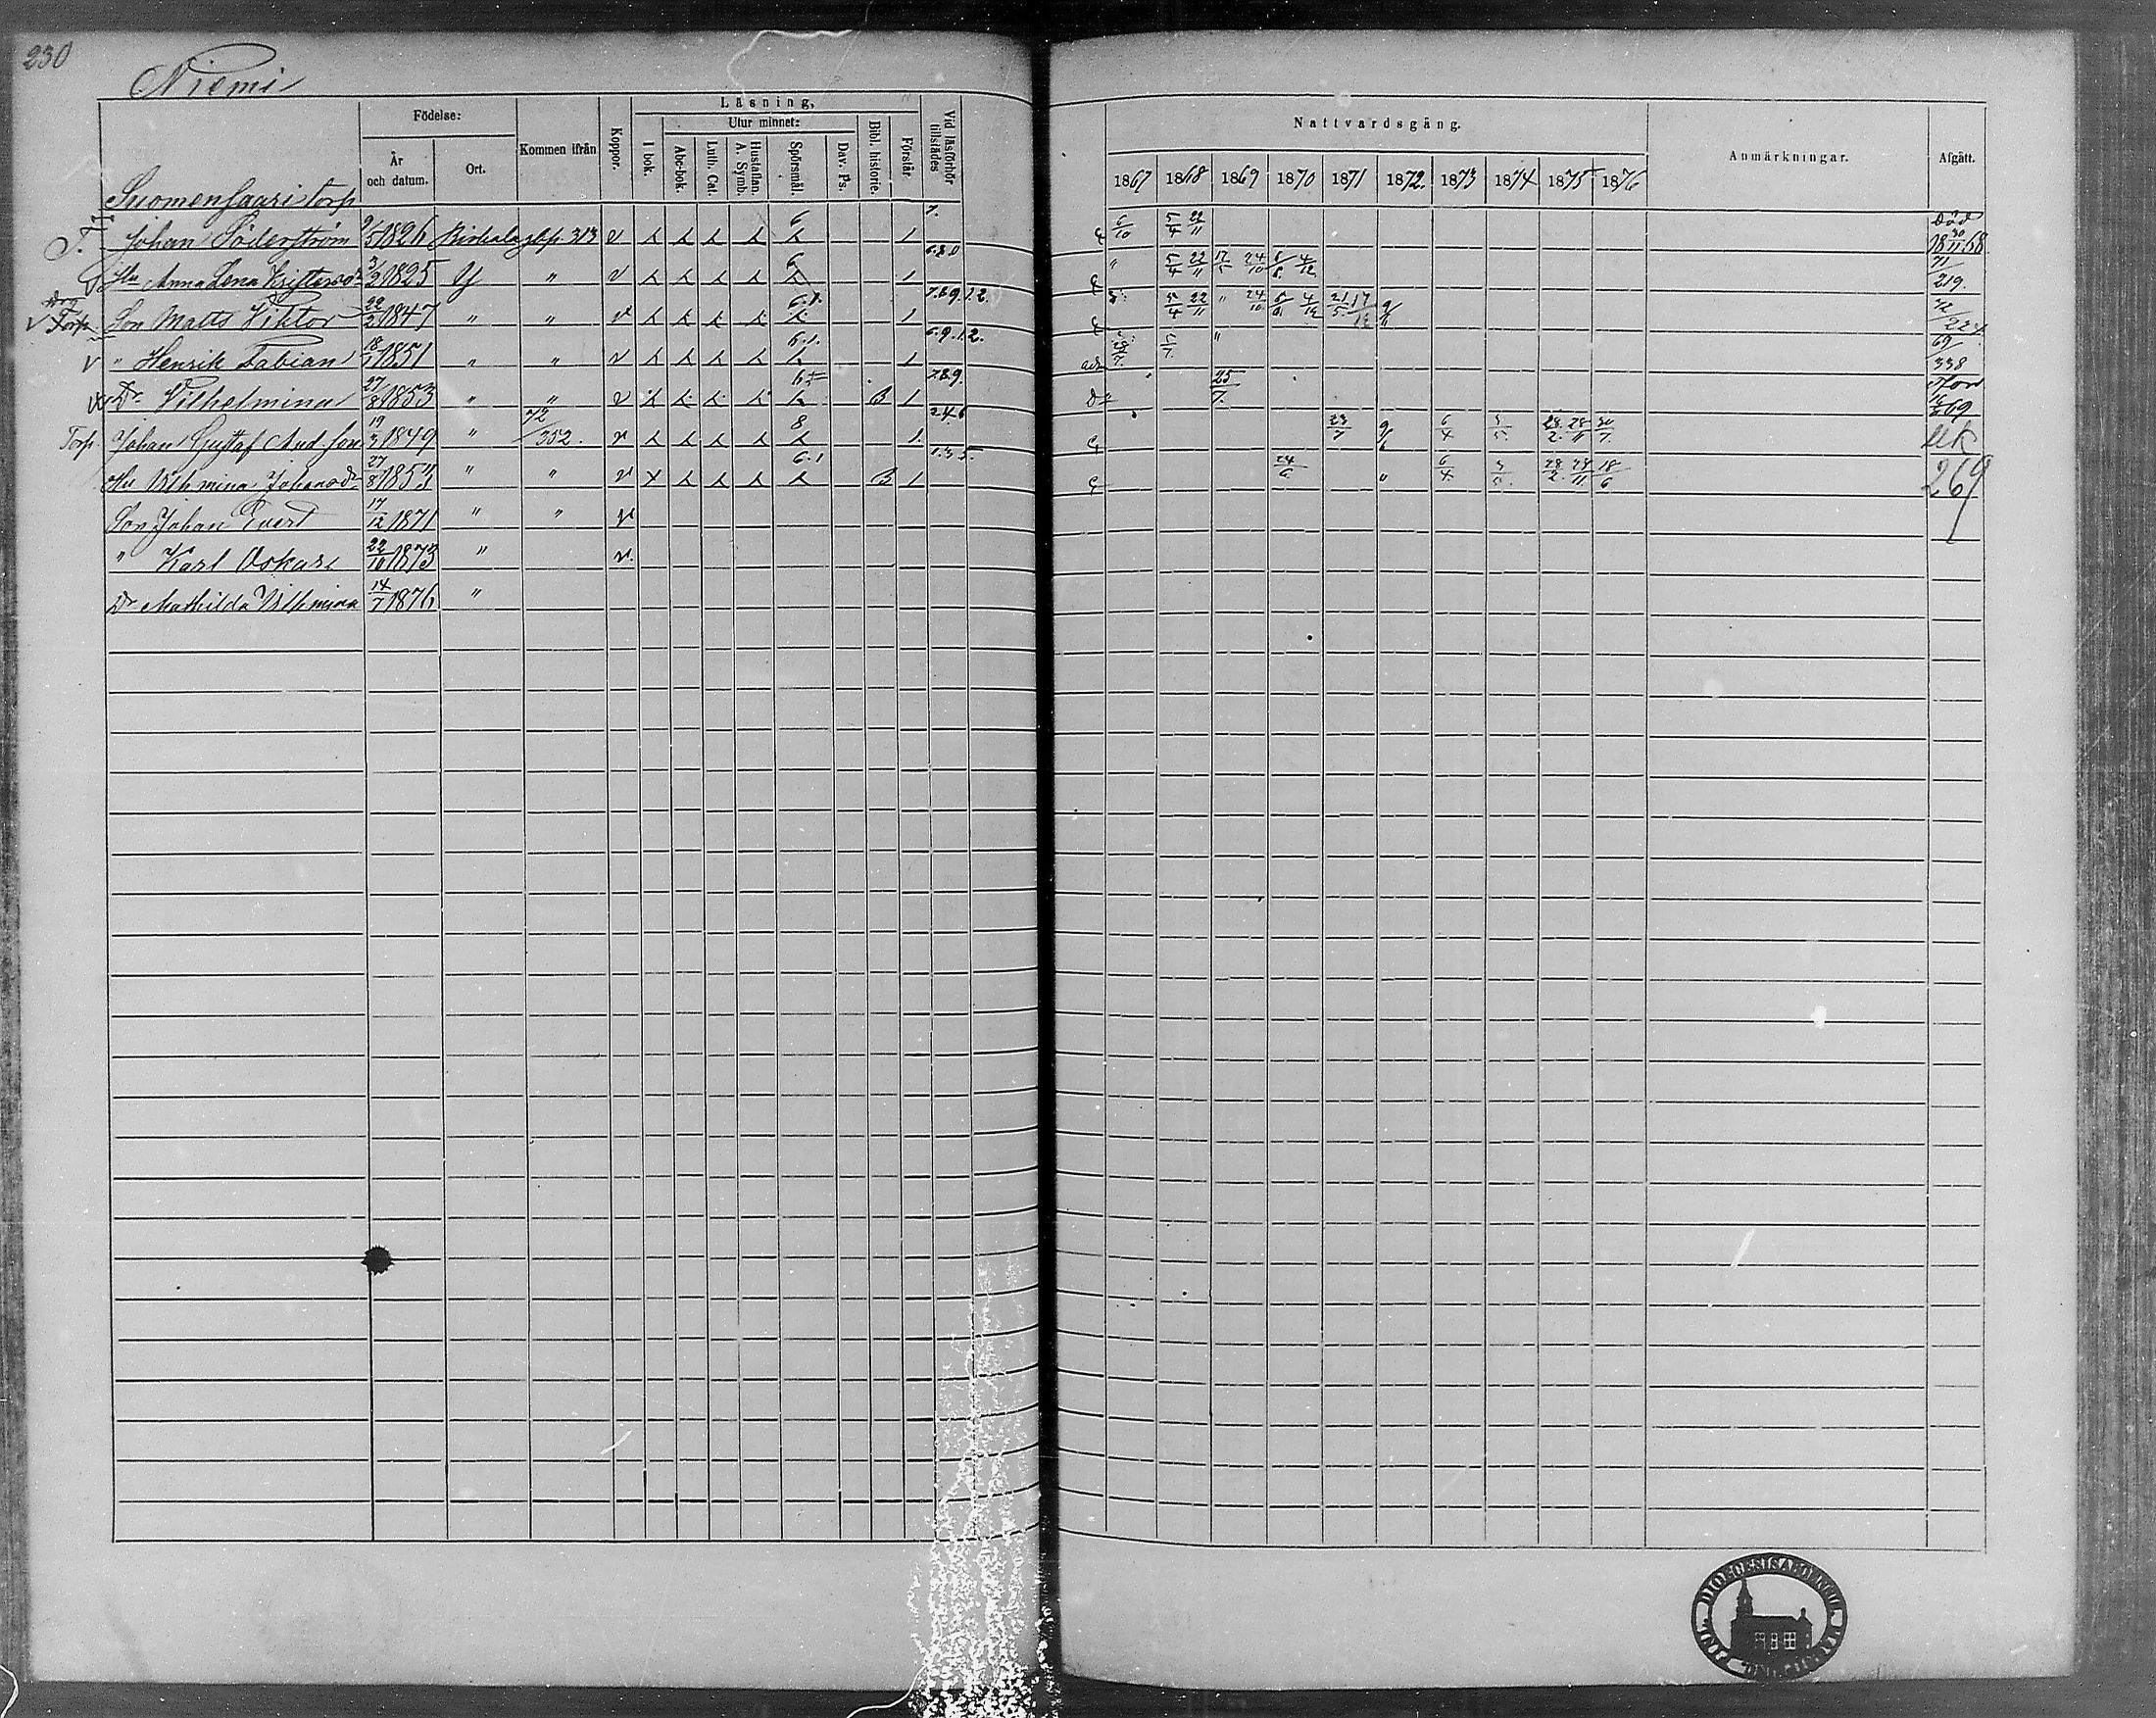 230
Niemi
Födelse: Kommen ifrån Koppor. Läsning, Vid läsförhör tillstädes
År och datum. Ort. I bok. Utur minnet: Bibl. historie. Förstår.
Abc-bok. Luth. Cat. Hustaflan. A. Symb. Spörsmål. Dav. Ps.
Nattvardsgång. Anmärkningar. Afgått.
1867 1868 1869 1870 1871 1872. 1873 1874 1875 1876
Suomensaari torp
Johan Söderström 9/5 1826 Birkala 313 v 6 1 7. 6/10 5/4 22/11 Död 30/11 1868
Hu Anna Lena 1825 " v 6 1 " 5/4 22/11 24/10 4/12 71/219.
Torp. Son Matts Viktor 22/2 1847 " " v 6.1. 1 7.8.9.1.2. 5/4 22/11 " 24/10 4/12 21/5 17/12 72/224
v " Henrik Fabian 18/1 1851 " " v 6.1. 1 6.9.1.2. 5/7. " 69/338
Dr Vilhelmina 27/8 1853 " " v B 1 7.8.9. 25/7.
Torp. Johan Gustaf And. son 19/3 1849 " 72/352. v 8 1. 2.4.6 23/7 6/4 3/5. 28/2. 28/11 30/7. Uk
Hu Vilhmina Johansdr 27/8 1853 " " v 6.1 B 1 1.3.5. 24/6. " 6/4. 28/2. 28/11 18/6 269
Son Johan Evert 17/12 1871 " " v
" Karl Oskar 22/10 1873 " v.
Dr Mathilda Vilhmina 14/7 1876 "